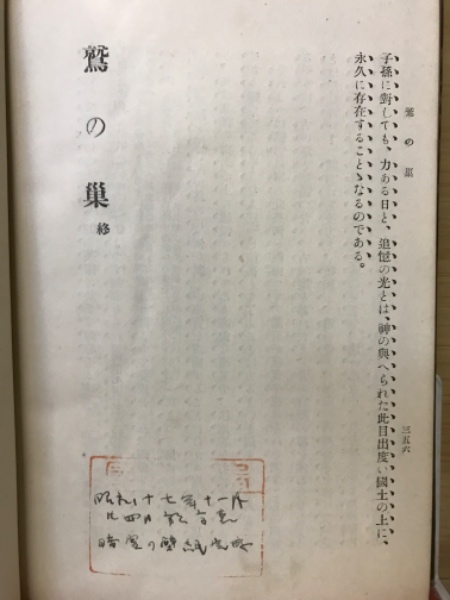 鷲の巢
三五六
子孫に對しても、力ある日と、追憶の光とは、神の與へられた此目出度い國土の上に、
永久に存在することゝなるのである。
鷲の巢 終
昭和十七年十一月
廿四日
暗室の壁紙